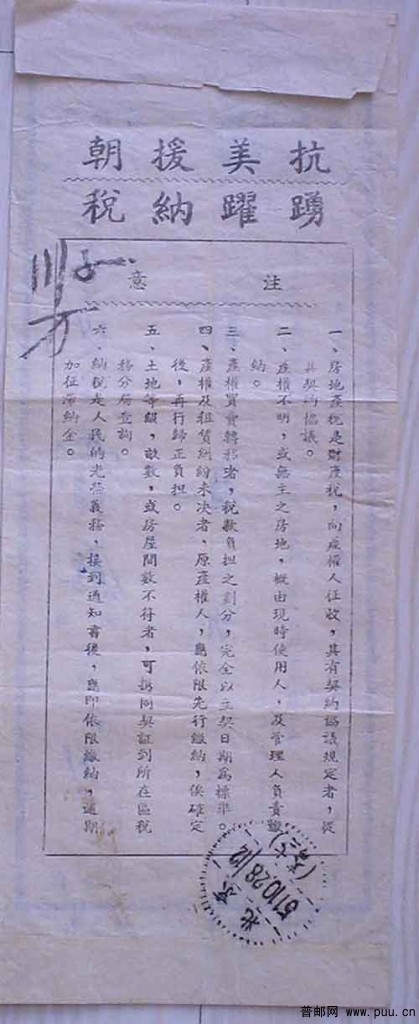 抗美援朝
踴躍納稅
注意
一、房地產稅是財產稅，向產權人征收，其有契約協議規定者，從
其契約協議。
二、產權不明，或無主之房地，概由現時使用人，及管理人負責繳
納。
三、產權買賣轉移者，稅款負担之劃分，完全以立契日期為標準。
四、產權及租賃糾紛未决者、原產權人，應依限先行繳納，俟確定
後，再行歸正負担。
五、土地等級，畝數，或房屋間數不符者，可携同契証到所在區稅
務分局查詢。
六、納稅是人民的光荣義務，接到通知書後，應即依限繳納，逾期
加征滯納金。
北京
511028 12
普邮网 www.puu.cn